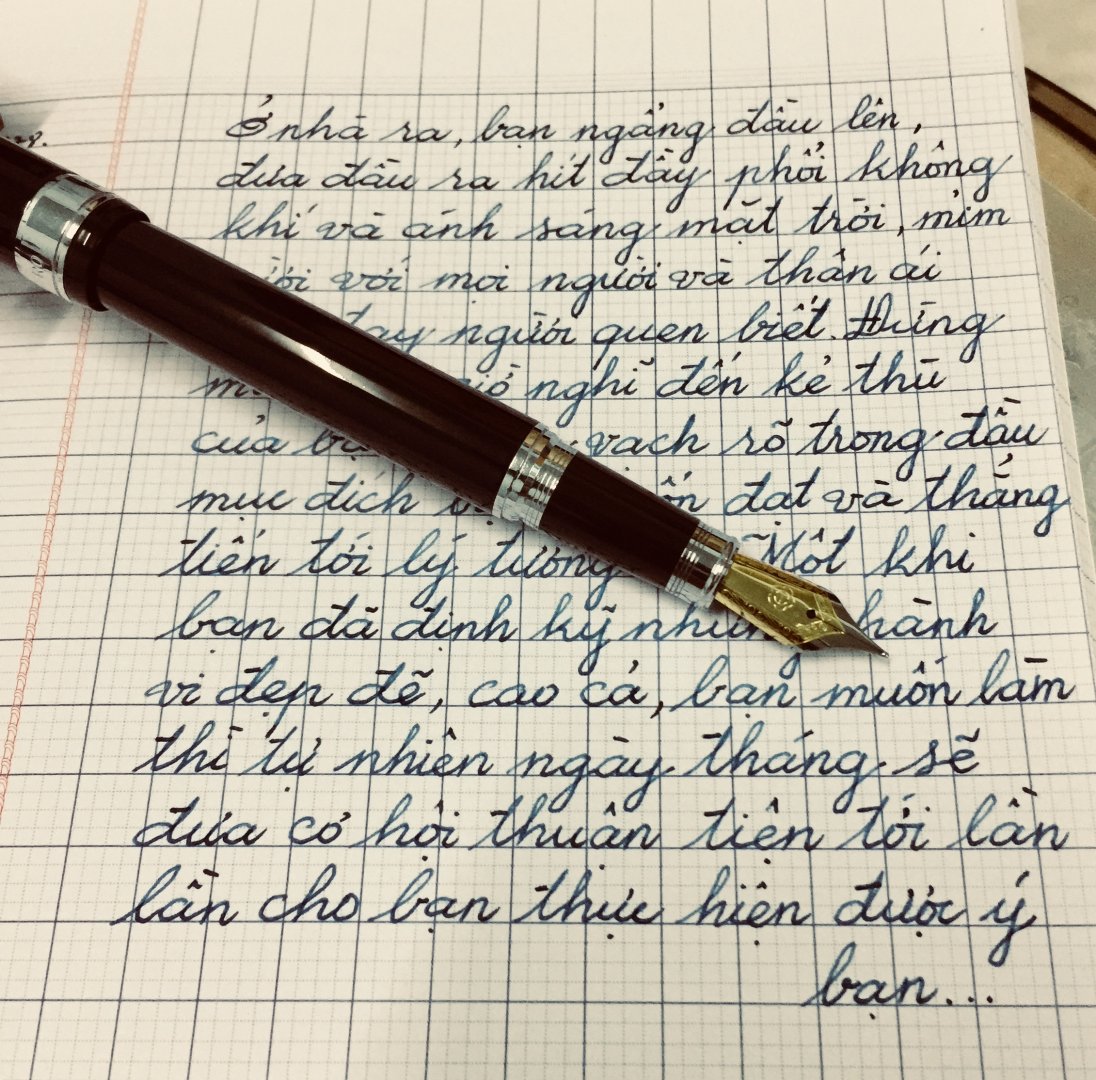 Ở nhà ra, bạn ngẩng đầu lên,
đưa đầu ra hít đầy phổi không
khí và ánh sáng mặt trời, mỉm
với mọi người và thân ái
tay người quen biết. Đừng
nghĩ đến kẻ thù
của vạch rõ trong đầu
mục đích đạt và thẳng
tiến tới lý tưởng Một khi
bạn đã định kỹ những hành
vi đẹp đẽ, cao cả, bạn muốn làm
thì tự nhiên ngày tháng sẽ
đưa cơ hội thuận tiện tới lần
lần cho bạn thực hiện được ý
bạn...